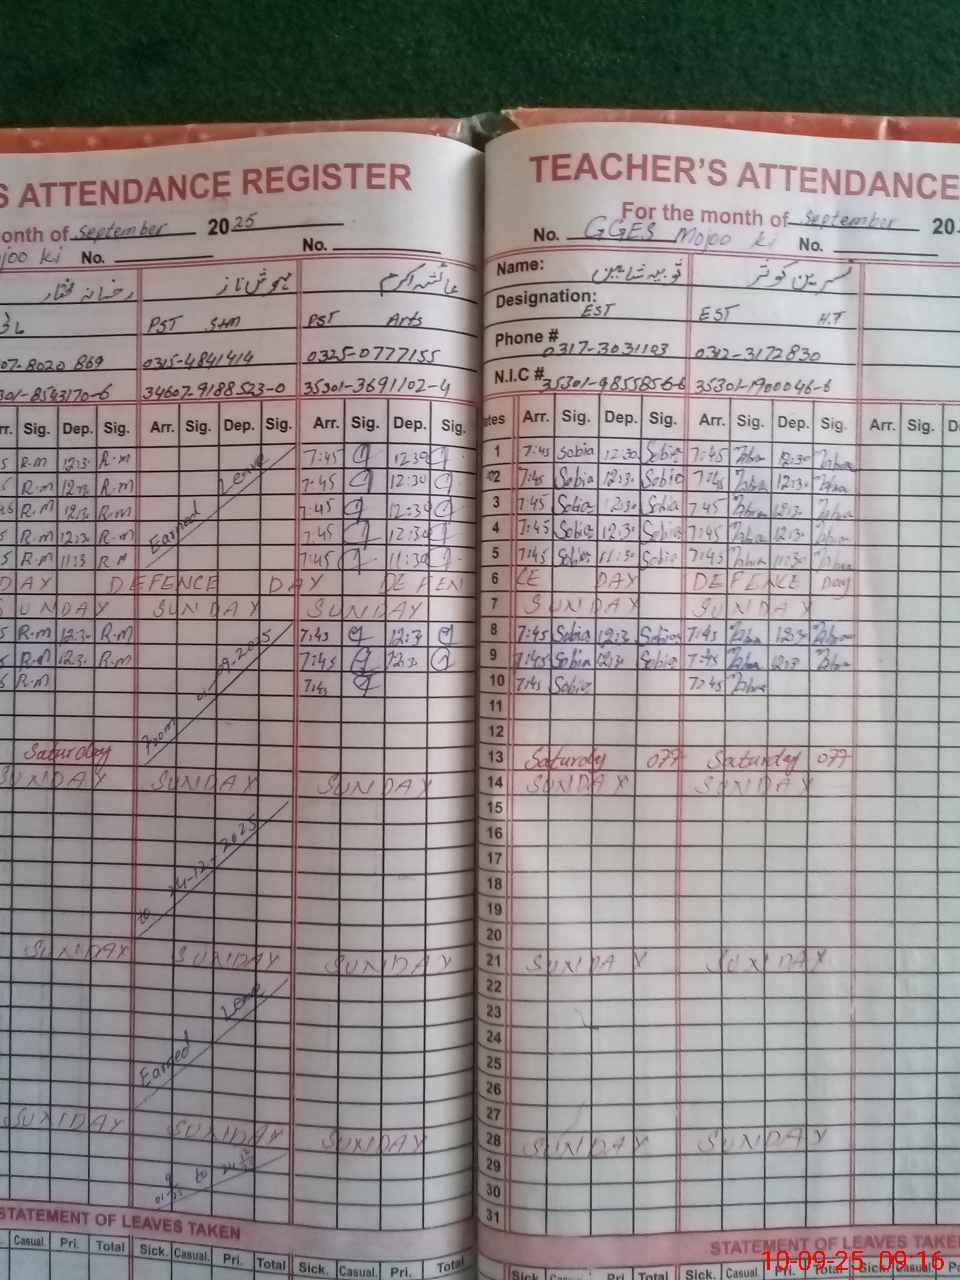 S ATTENDANCE REGISTER
onth of September 2025
ojoo ki No. No.
رخسانہ مختار مہوش ناز عائشہ اکرم
PST S+m PST Arts
07-8020 869 0315-4841414 0325-0777155
301-8543170-6 34607-9188523-0 35301-3691102-4
rr. Sig. Dep. Sig. Arr. Sig. Dep. Sig. Arr. Sig. Dep. Sig.
5 R.m 12:3 R.m 7:45 12:30
5 R.m 12:3 R.m Earned Leave 7:45 12:30
R.m 12:3 R.m 7:45 12:30
5 R.m 12:3 R.m 7.45 12:30
5 R.m 11:3 R.m 7:45 11:30
DAY DEFFENCE DAY DEFEN
SUNDAY SUNDAY SUNDAY
5 R.m 12:3 R.m 7:45 12:3
5 R.m 12:3 R.m 7:45 12:3
5 R.m From 7:45
Saturday
SUNDAY SUNDAY SUNDAY
to 24-12-2025
SUNDAY SUNDAY SUNDAY
Earned Leave
SUNDAY SUNDAY SUNDAY
to
STATEMENT OF LEAVES TAKEN
Casual. Pri. Total Sick. Casual. Pri. Total Sick. Casual. Pri. Total
TEACHER'S ATTENDANCE
For the month of September 20
No. GGES Mojoo ki No.
Name: ثوبیہ شاہین نسرین کوثر
Designation: EST EST H.T
Phone # 0317-3031103 0312-3172830
N.I.C # 35301-9855856-6 35301-1900046-6
tes Arr. Sig. Dep. Sig. Arr. Sig. Dep. Sig. Arr. Sig. D
1 7:45 Sobia 12:30 Sobia 7:45 12:30
02 7:45 Sobia 12:3 Sobia 7:45 12:3
3 7:45 Sobia 12:3 Sobia 7:45 12:3
4 7:45 Sobia 12:3 Sobia 7:45 12:3
5 7:45 Sobia 11:30 Sobia 7:45 11:30
6 CE DAY DEFENCE Day
7 SUNDAY SUNDAY
8 7:45 Sobia 12:3 Sobia 7:45 12:3
9 7:45 Sobia 12:3 Sobia 7:45 12:3
10 7:45 Sobia 7:45
11
12
13 Saturday off Saturday off
14 SUNDAY SUNDAY
15
16
17
18
19
20
21 SUNDAY SUNDAY
22
23
24
25
26
27
28 SUNDAY SUNDAY
29
30
31
STATEMENT OF LEAVES TAKE
Sick Casual. Pri. Total Sick. Casual.
10-09-25 09:16